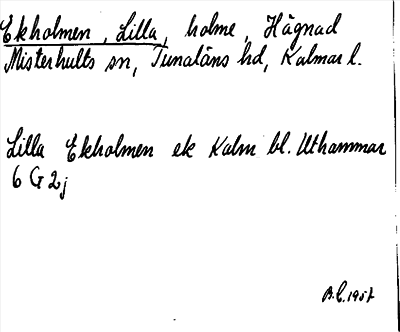 Ekholmen, Lilla, holme, Hägnad
Misterhults sn, Tunaläns hd, Kalmar l.
Lilla Ekholmen ek Kalm bl. Uthammar
6 G 2j
A.C. 1957